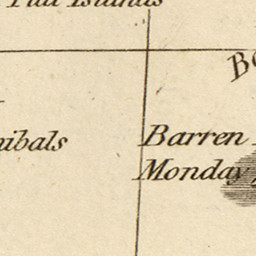 Islands
Bo
nibals
Barren
Monday